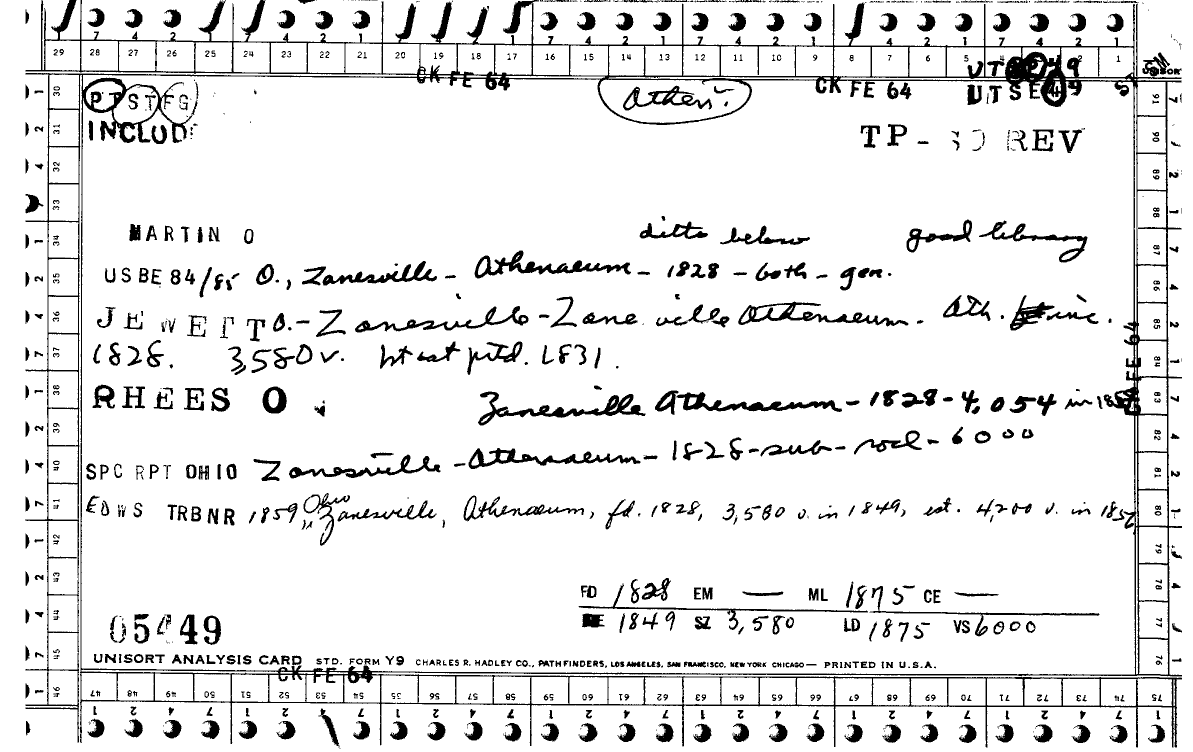 7 4 2 1 7 4 2 1 7 4 2 1 7 4 2 1 7 4 2 1 7 4 2 1 7 4 2 1
29 28 27 26 25 24 23 22 21 20 19 18 17 16 15 14 13 12 11 10 9 8 7 6 5 4 3 2 1
CK FE 64 CK FE 64
UTSE49
PT ST FG Athen.
INCLUD
TP- REV
MARTIN O ditto below good library
USBE 84/85 O., Zanesville - Athenaeum - 1828 - both - gen.
JEWETT O. - Zanesville - Zane ville Athenaeum. Ath. inc.
1828. 3,580 v. lst cat ptd. 1831.
RHEES O Zanesville Athenaeum - 1828 - 4,054 in
SPC RPT OHIO Zanesville - Athenaeum - 1828 - sub - - 6000
EDWS TRBNR 1859, Ohio, Zanesville, Athenaeum, fd. 1828, 3,580 v. in 1849, est. 4,200 v. in
FD 1828 EM — ML 1875 CE —
1849 SZ 3,580 LD 1875 VS 6000
05449
UNISORT ANALYSIS CARD STD. FORM Y9 CHARLES R. HADLEY CO., PATHFINDERS, LOS ANGELES, SAN FRANCISCO, NEW YORK CHICAGO — PRINTED IN U.S.A.
CK FE 64
47 48 49 50 51 52 53 54 55 56 57 58 59 60 61 62 63 64 65 66 67 68 69 70 71 72 73 74 75